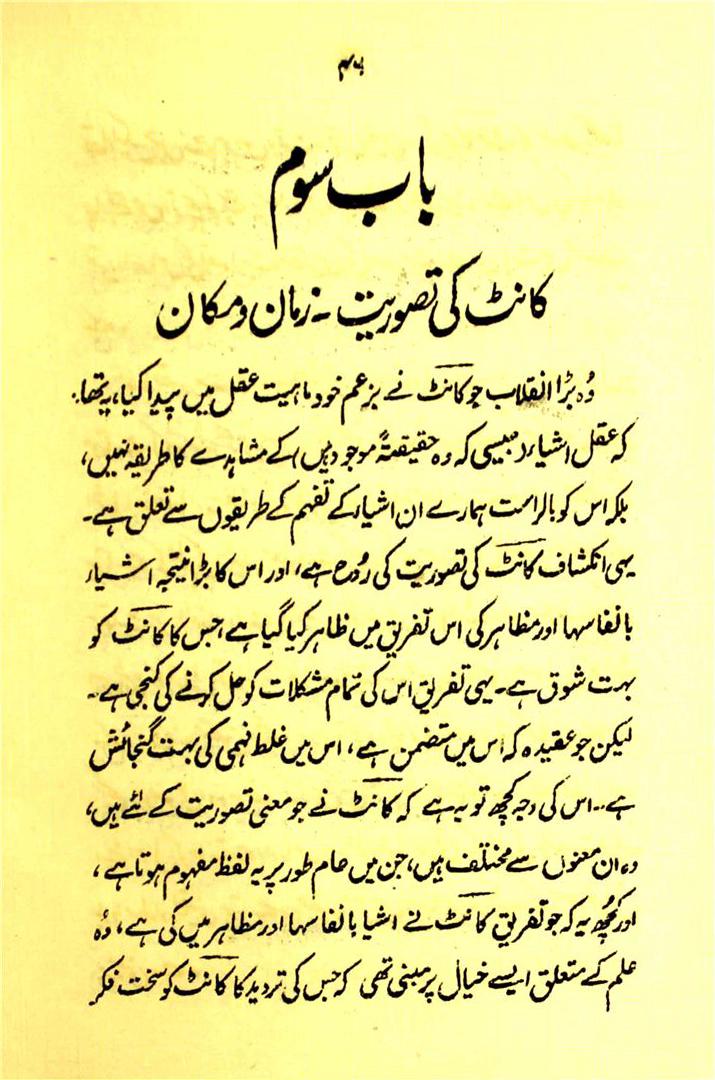 ۴۶
باب سوم
کانٹ کی تصوریت ۔ زمان و مکان
وُہ بڑا انقلاب جو کانٹ نے بزعم خود ماہیت عقل میں پیدا کیا، یہ تھا۔
کہ عقل اشیاء (جیسی کہ وہ حقیقتہً موجود ہیں) کے مشاہدے کا طریقہ نہیں،
بلکہ اس کو بالراست ہمارے ان اشیاء کے تفہم کے طریقوں سے تعلق ہے۔
یہی انکشاف کانٹ کی تصوریت کی رُوح ہے، اور اس کا بڑا نتیجہ اشیاء
بانفاسہا اور مظاہر کی اس تفریق میں ظاہر کیا گیا ہے، جس کا کانٹ کو
بہت شوق ہے۔ یہی تفریق اس کی تمام مشکلات کو حل کرنے کی کنجی ہے۔
لیکن جو عقیدہ کہ اس میں متضمن ہے، اس میں غلط فہمی کی بہت گنجائش
ہے۔ اس کی وجہ کچھ تو یہ ہے کہ کانٹ نے جو معنی تصوریت کے لئے ہیں،
وہ ان معنوں سے مختلف ہیں، جن میں عام طور پر یہ لفظ مفہوم ہوتا ہے،
اور کچُھ یہ کہ جو تفریق کانٹ نے اشیا بانفاسہا اور مظاہر میں کی ہے، وُہ
علم کے متعلق ایسے خیال پر مبنی تھی کہ جس کی تردید کا کانٹ کو سخت فکر